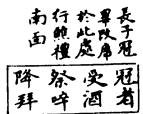 長子冠
畢改席
於此處
行醮禮
南面
冠者
受酒
祭啐
降拜